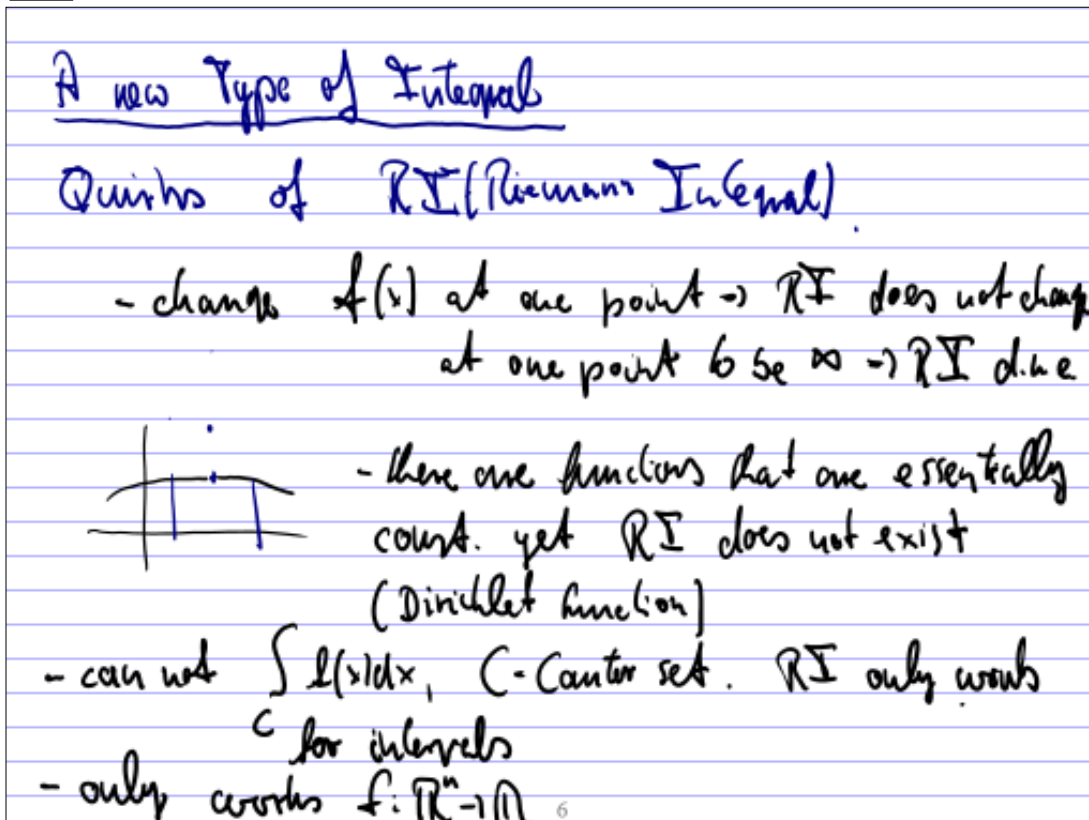 A new Type of Integral
Quirks of RI (Riemann Integral).
- change f(x) at one point → RI does not change
at one point to be ∞ → RI d.n.e
- there are functions that are essentially
const. yet RI does not exist
(Dirichlet function)
- can not ∫_C f(x)dx, C-Cantor set. RI only works
for intervals
- only works f: ℝⁿ → ℝ
6